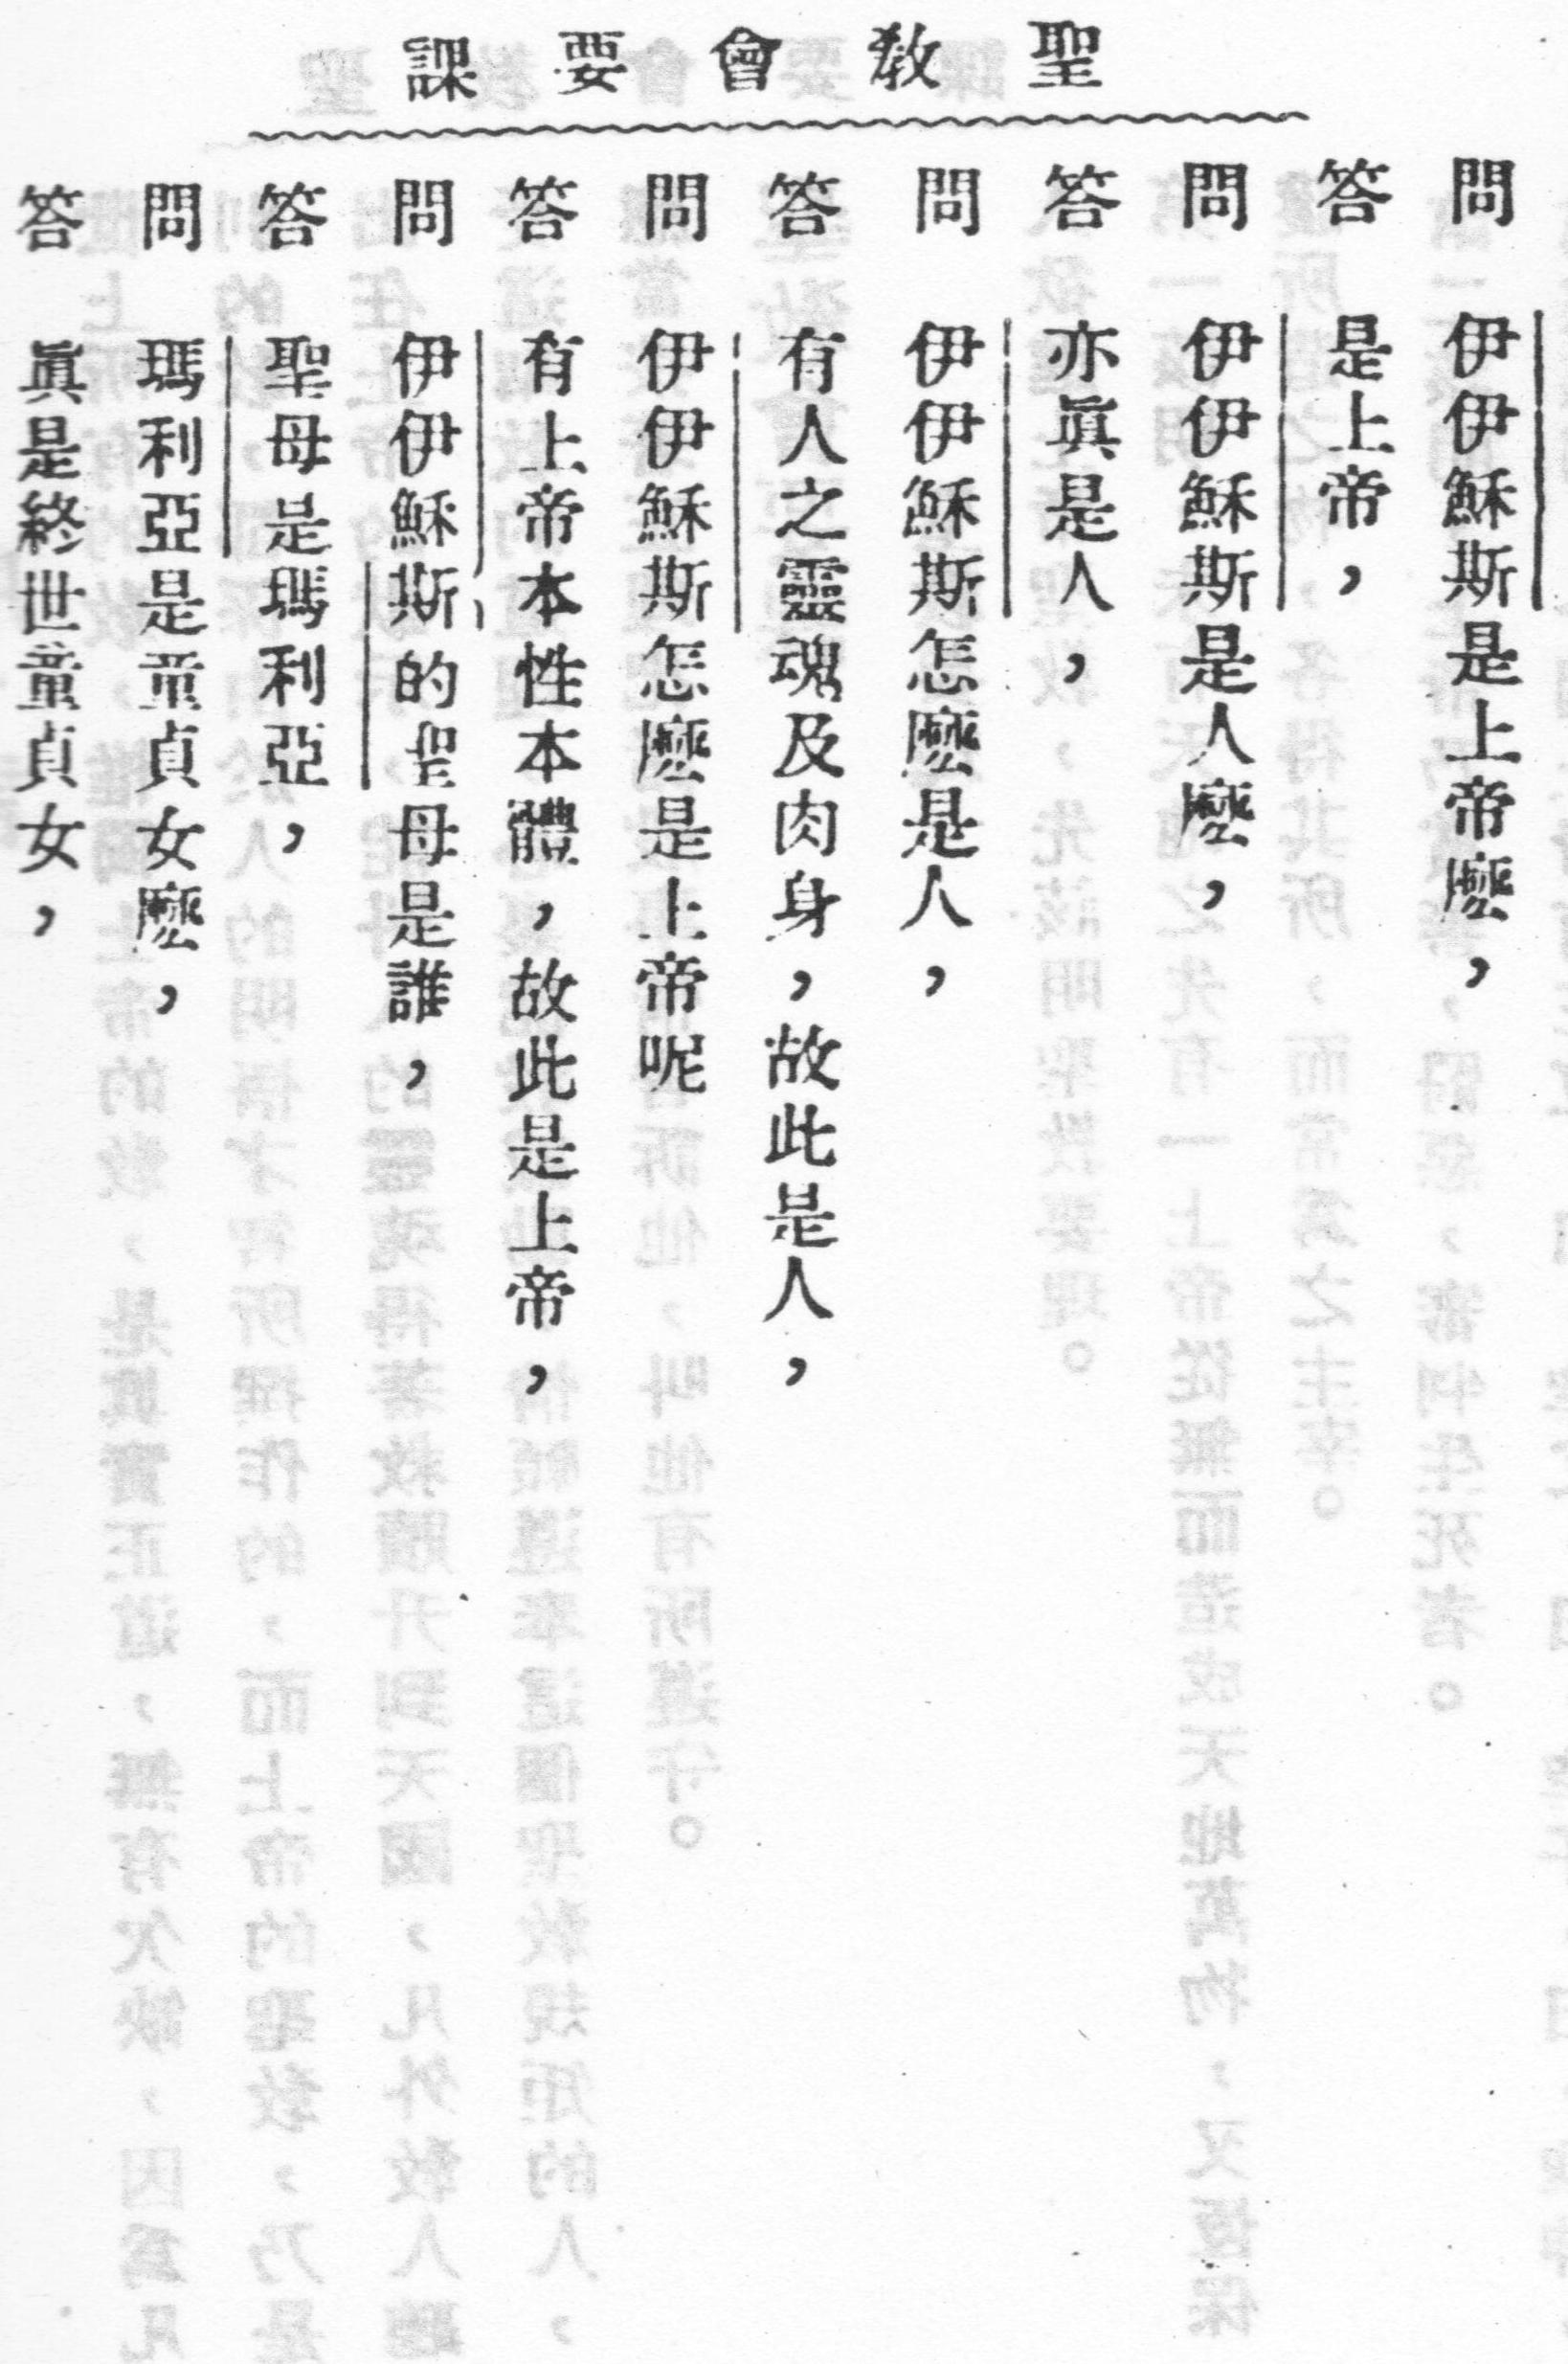 聖教會要課
問 伊伊穌斯是上帝麽，
答 是上帝，
問 伊伊穌斯是人麽，
答 亦眞是人，
問 伊伊穌斯怎麽是人，
答 有人之靈魂及肉身，故此是人，
問 伊伊穌斯怎麽是上帝呢
答 有上帝本性本體，故此是上帝，
問 伊伊穌斯的聖母是誰，
答 聖母是瑪利亞，
問 瑪利亞是童貞女麽，
答 眞是終世童貞女，